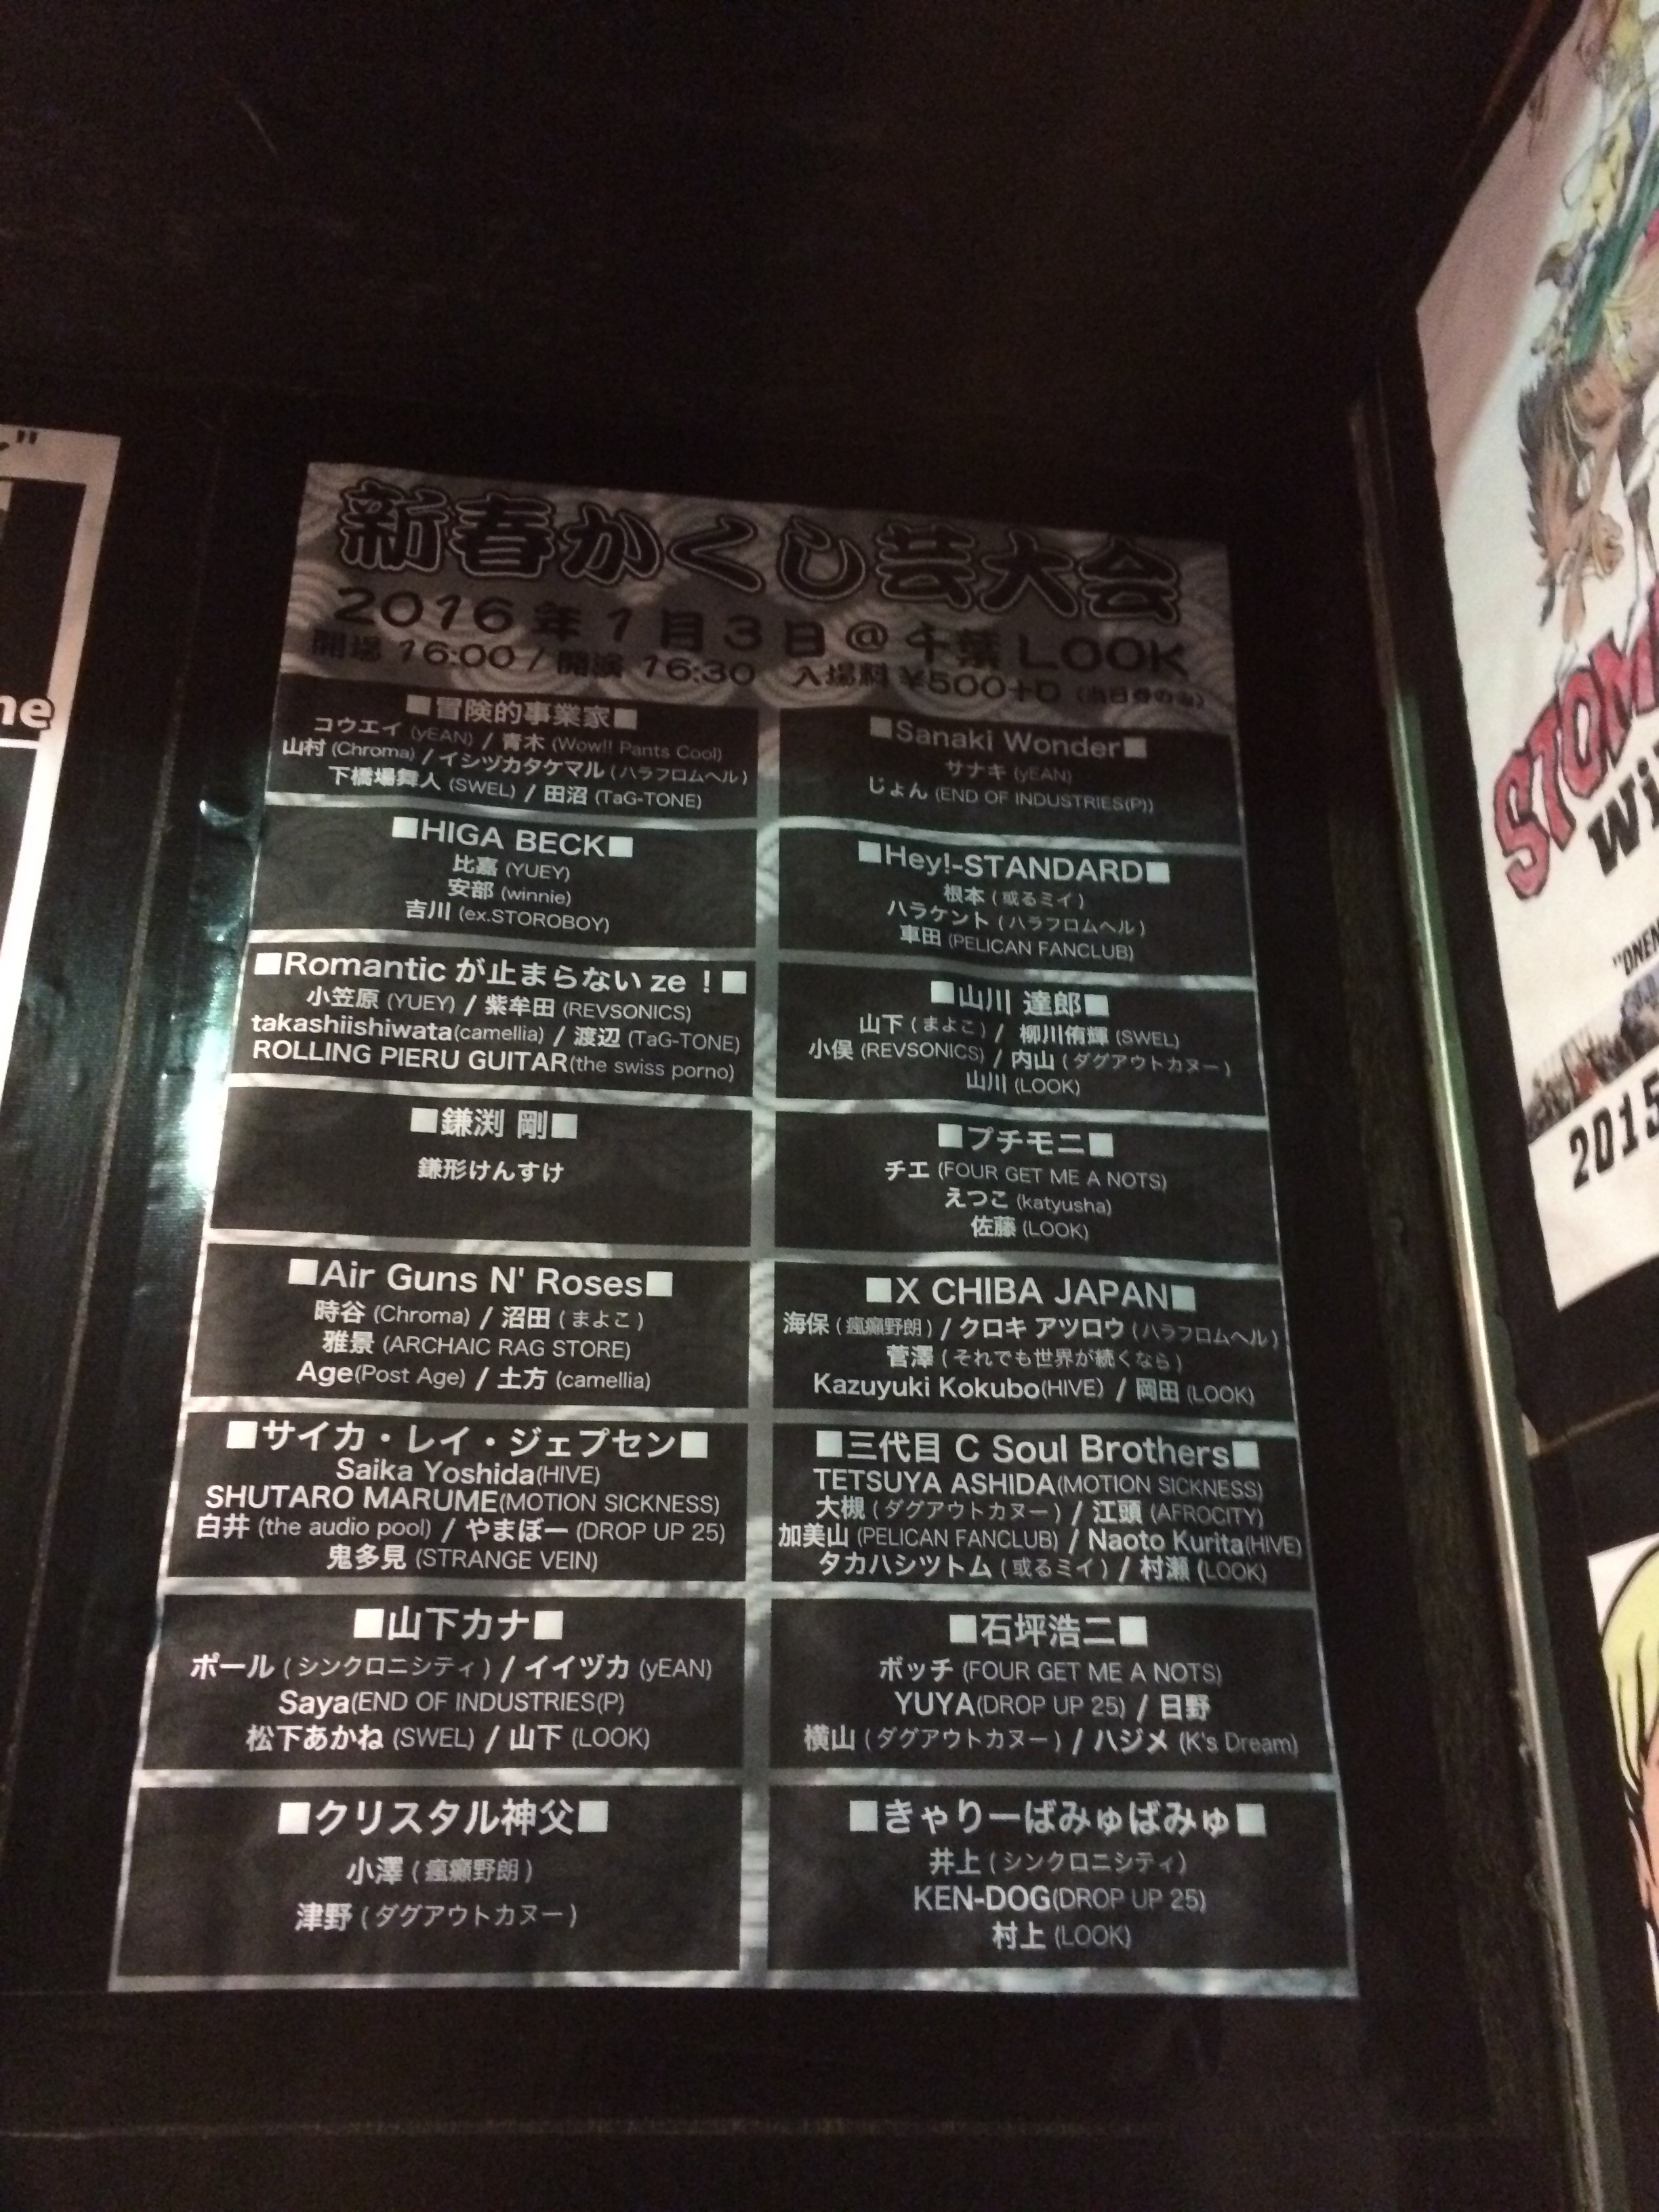 新春かくし芸大会
2016年1月3日@千葉LOOK
開場 16:00 / 開演 16:30 入場料 ¥500+D (当日券のみ)
■冒険的事業家■
コウエイ (yEAN) / 青木 (Wow!! Pants Cool)
山村 (Chroma) / イシヅカタケマル (ハラフロムヘル)
下橋場舞人 (SWEL) / 田沼 (TaG-TONE)
■Sanaki Wonder■
サナキ (yEAN)
じょん (END OF INDUSTRIES(P))
■HIGA BECK■
比嘉 (YUEY)
安部 (winnie)
吉川 (ex.STOROBOY)
■Hey!-STANDARD■
根本 (或るミイ)
ハラケント (ハラフロムヘル)
車田 (PELICAN FANCLUB)
■Romantic が止まらない ze！■
小笠原 (YUEY) / 紫牟田 (REVSONICS)
takashiishiwata(camellia) / 渡辺 (TaG-TONE)
ROLLING PIERU GUITAR(the swiss porno)
■山川 達郎■
山下 (まよこ) / 柳川侑輝 (SWEL)
小俣 (REVSONICS) / 内山 (ダグアウトカヌー)
山川 (LOOK)
■鎌渕 剛■
鎌形けんすけ
■プチモニ■
チエ (FOUR GET ME A NOTS)
えつこ (katyusha)
佐藤 (LOOK)
■Air Guns N' Roses■
時谷 (Chroma) / 沼田 (まよこ)
雅景 (ARCHAIC RAG STORE)
Age(Post Age) / 土方 (camellia)
■X CHIBA JAPAN■
海保 (瘋癲野朗) / クロキ アツロウ (ハラフロムヘル)
菅澤 (それでも世界が続くなら)
Kazuyuki Kokubo(HIVE) / 岡田 (LOOK)
■サイカ・レイ・ジェプセン■
Saika Yoshida(HIVE)
SHUTARO MARUME(MOTION SICKNESS)
白井 (the audio pool) / やまぼー (DROP UP 25)
鬼多見 (STRANGE VEIN)
■三代目 C Soul Brothers■
TETSUYA ASHIDA(MOTION SICKNESS)
大槻 (ダグアウトカヌー) / 江頭 (AFROCITY)
加美山 (PELICAN FANCLUB) / Naoto Kurita(HIVE)
タカハシツトム (或るミイ) / 村瀬 (LOOK)
■山下カナ■
ポール (シンクロニシティ) / イイヅカ (yEAN)
Saya(END OF INDUSTRIES(P)
松下あかね (SWEL) / 山下 (LOOK)
■石坪浩二■
ボッチ (FOUR GET ME A NOTS)
YUYA(DROP UP 25) / 日野
横山 (ダグアウトカヌー) / ハジメ (K's Dream)
■クリスタル神父■
小澤 (瘋癲野朗)
津野 (ダグアウトカヌー)
■きゃりーばみゅばみゅ■
井上 (シンクロニシティ)
KEN-DOG(DROP UP 25)
村上 (LOOK)
2015